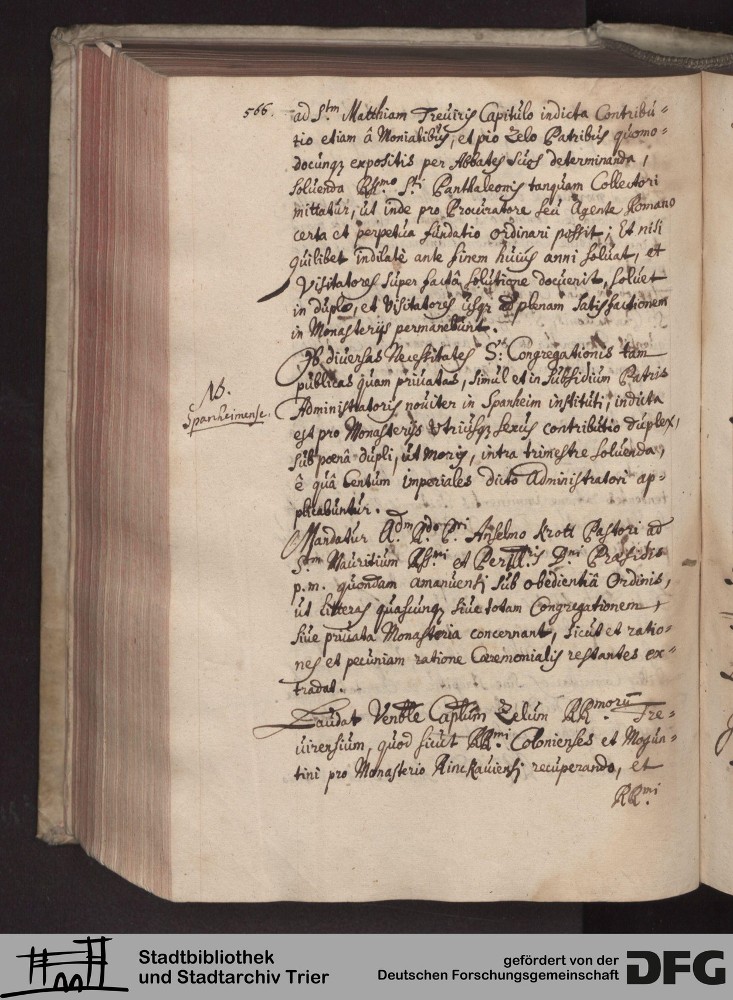 566.
ad S.tm Matthiam Treuiris Capitulo indicta Contribu=
tio etiam â Monialibus, et pio Zelo Patribus quomo=
docunq; expositis per Abbates suos determinanda,
soluenda RR.mo S.ti Panthaleonis tanquam Collectori
mittatur, ut inde pro Procuratore seu Agente Romano
certa et perpetua fundatio ordinari possit; Et nisi
quilibet indilatè ante finem huius anni soluat, et
Visitatores super factâ solutione docuerit, soluet
in duplo, et Visitatores usq; ad plenam satisfactionem
in Monasterijs permanebunt.
Ob diuersas Necessitates S.æ Congregationis tam
publicas quam priuatas, simul et in subsidium Patris
NB.
Spanheimense.
Administratoris nouiter in Spanheim instituti, indicta
est pro Monasterijs utriusq; sexus contributio duplex,
sub poenâ dupli, ut moris, intra trimestre soluenda,
è quâ Centum imperiales dicto Administratori ap=
plicabuntur.
Mandatur A.dm R.do P.ri Anselmo Krott Pastori ad
S.tm Mauritium RR.mi et Perill.ris D.ni Præsidis
p.m. quondam amanuensi sub obedientiâ Ordinis,
ut litteras quascunq; siue totam Congregationem,
siue priuata Monasteria concernant, sicut et ratio=
nes et pecuniam ratione Cæremonialis restantes ex=
tradat.
Laudat Venble Caplum Zelum RR.morū Tre=
uirensium, quod sicut RR.mi Colonienses et Mogun=
tini pro Monasterio Rinckauiensi recuperando, et
RR.mi
Stadtbibliothek
und Stadtarchiv Trier
gefördert von der
Deutschen Forschungsgemeinschaft
DFG